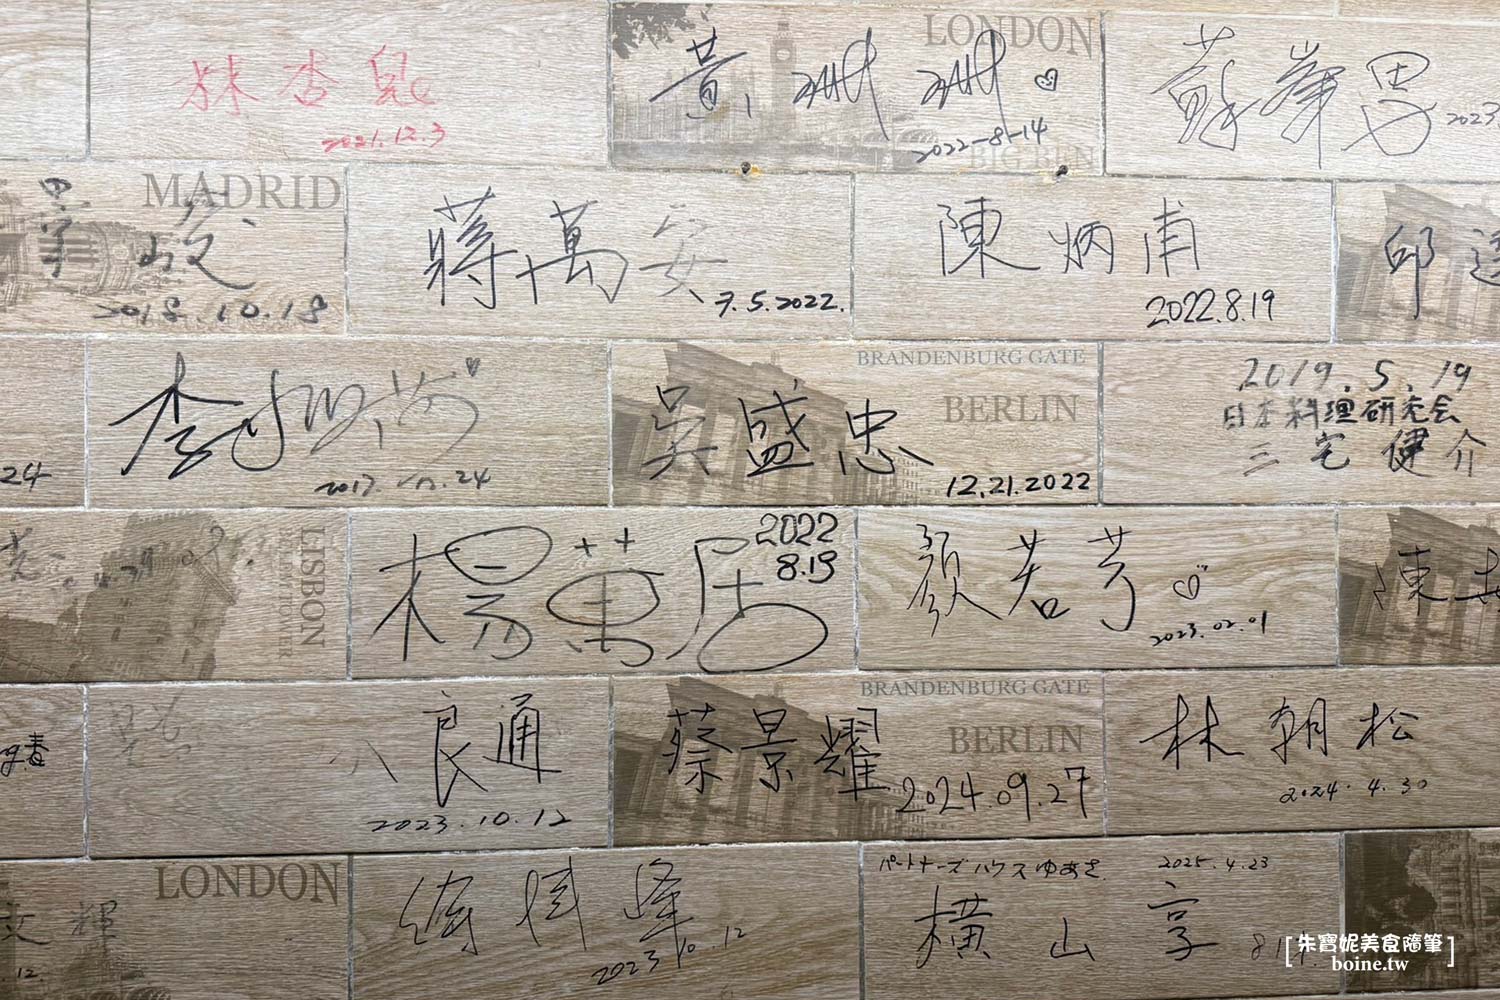 林杏兒
2021.12.3
LONDON
黃
2022-8-14
BIG BEN
蘇峯男
2023
MADRID
2018.10.18
蔣萬安
7.5.2022.
陳炳甫
2022.8.19
邱
李
24
BRANDENBURG GATE
BERLIN
吳盛忠
12.21.2022
2019.5.19
日本料理研究会
三宅健介
LISBON
BELEM TOWER
2022
8.13
楊萬居
顏若芳
2023.02.01
陳
良通
2023.10.12
BRANDENBURG GATE
BERLIN
蔡景耀
2024.09.27
林朝松
2024.4.30
LONDON
文輝
.12
峰
2023 10.12
パートナーズハウスゆあさ
2025.4.23
横山享
[朱寶妮美食隨筆]
boine.tw